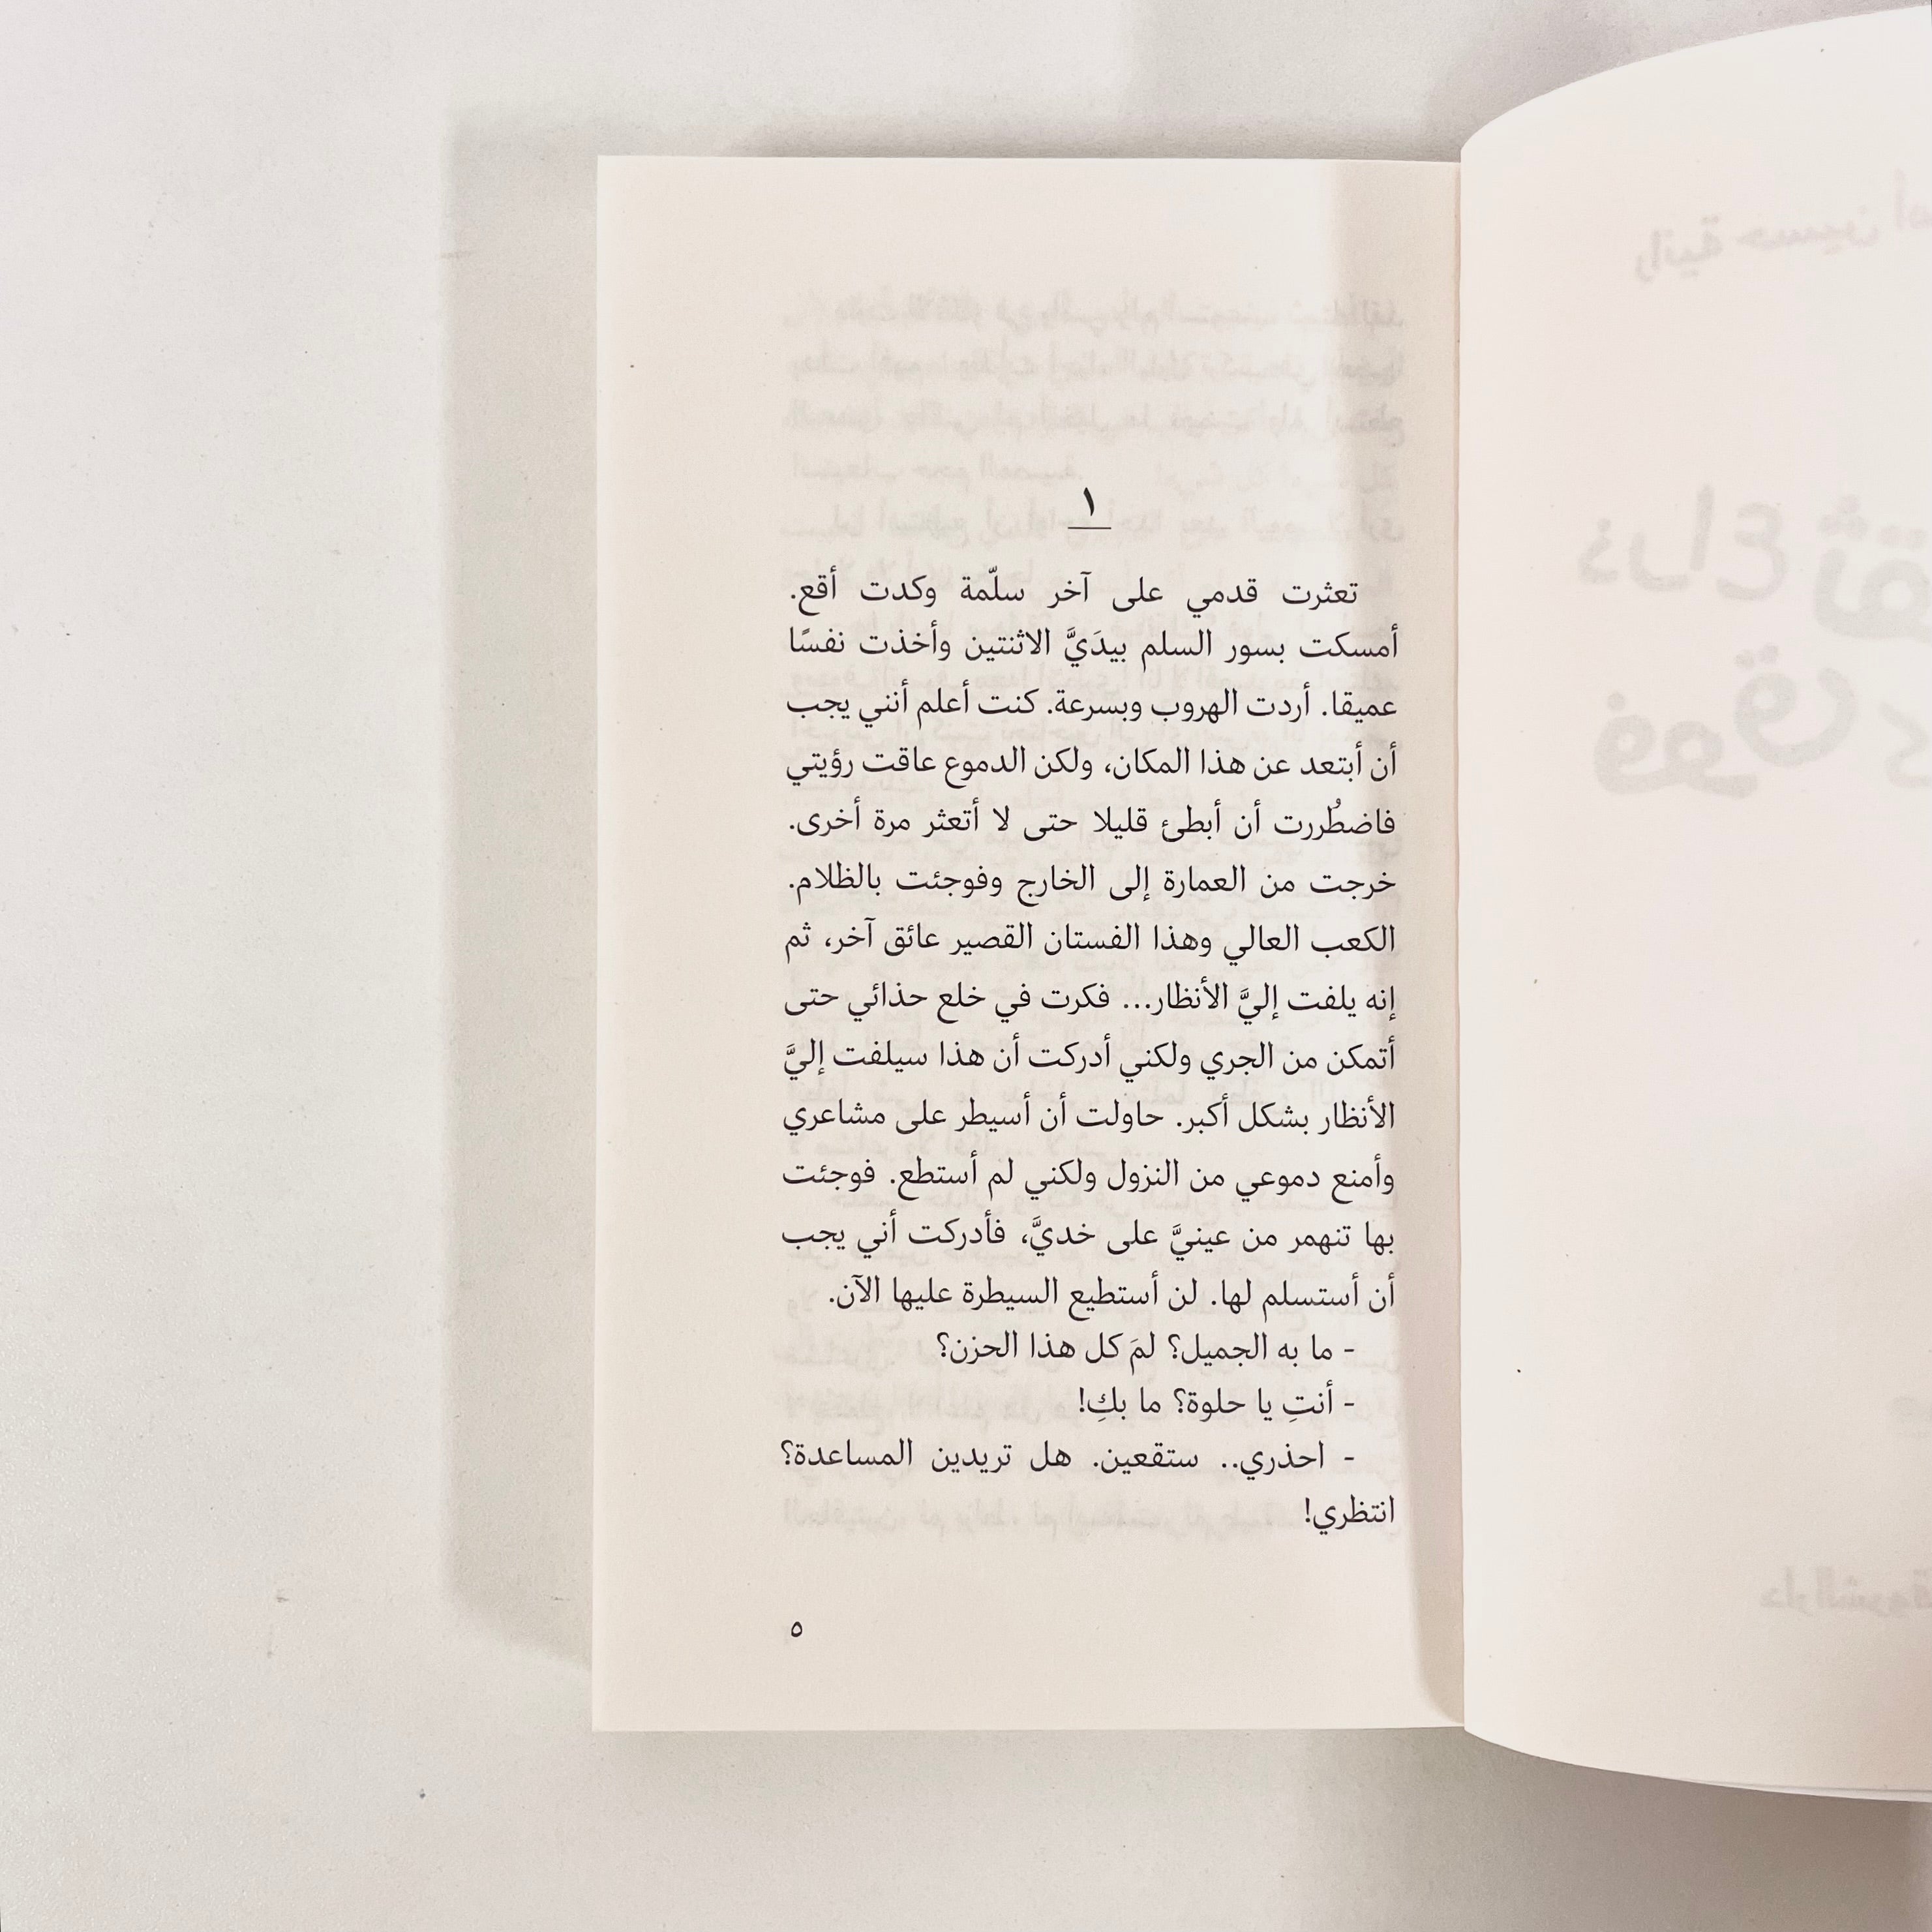 ١
تعثرت قدمي على آخر سلّمة وكدت أقع.
أمسكت بسور السلم بيدَيَّ الاثنتين وأخذت نفسًا
عميقا. أردت الهروب وبسرعة. كنت أعلم أنني يجب
أن أبتعد عن هذا المكان، ولكن الدموع عاقت رؤيتي
فاضطُررت أن أبطئ قليلا حتى لا أتعثر مرة أخرى.
خرجت من العمارة إلى الخارج وفوجئت بالظلام.
الكعب العالي وهذا الفستان القصير عائق آخر، ثم
إنه يلفت إليَّ الأنظار... فكرت في خلع حذائي حتى
أتمكن من الجري ولكني أدركت أن هذا سيلفت إليَّ
الأنظار بشكل أكبر. حاولت أن أسيطر على مشاعري
وأمنع دموعي من النزول ولكني لم أستطع. فوجئت
بها تنهمر من عينيَّ على خديَّ، فأدركت أني يجب
أن أستسلم لها. لن أستطيع السيطرة عليها الآن.
- ما به الجميل؟ لمَ كل هذا الحزن؟
- أنتِ يا حلوة؟ ما بكِ!
- احذري.. ستقعين. هل تريدين المساعدة؟
انتظري!
٥